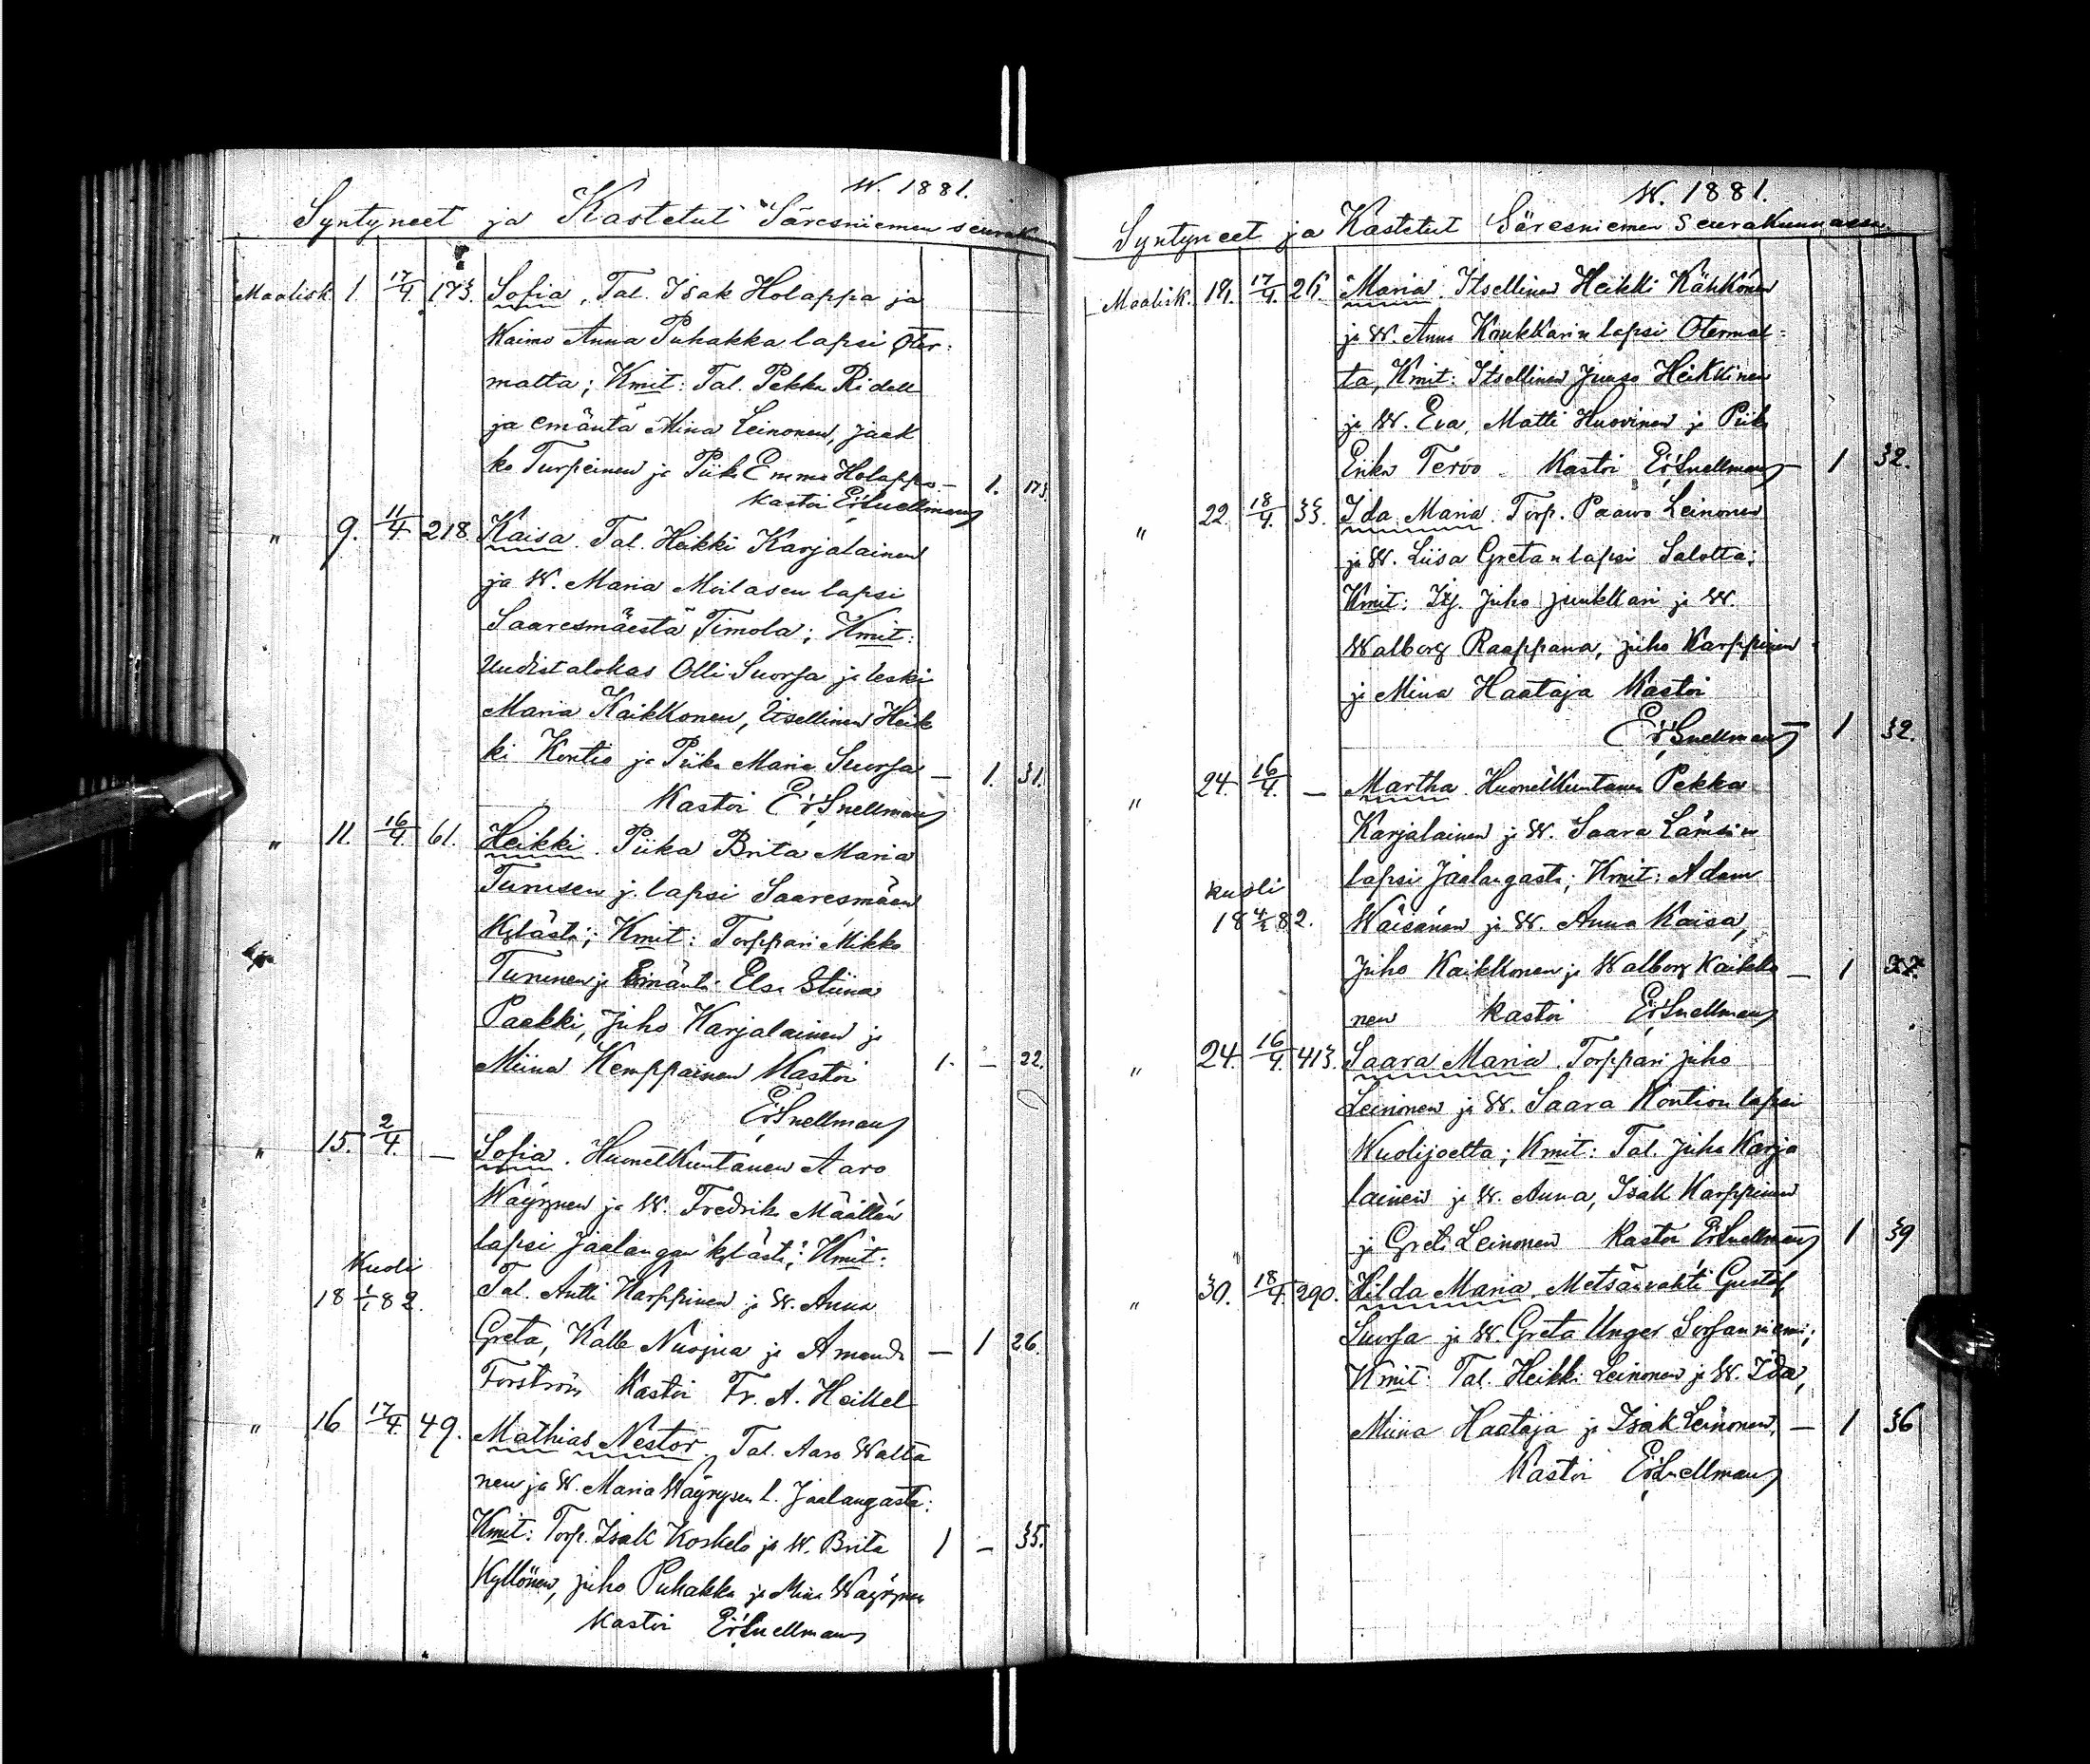 W. 1881.
Syntyneet ja Kastetut Säresniemen seurak
Maalisk. 1. 17/4. 173. Sofia, Tal. Isak Holappa ja
Waimo Anna Puhakka lapsi Oter-
malta; Kmit: Tal. Pekka Ridell
ja emäntä Mina Leinonen, Jaak
ko Turpeinen ja Piika Emma Holappa — 1. 173.
Kastoi Er. Snellman
" 9. 11/4 218 Kaisa. Tal. Heikki Karjalainen
ja W. Maria Moilasen lapsi
Saaresmäestä Timola; Kmit:
Uudistalokas Olli Suorsa ja leski
Maria Kaikkonen, Itsellinen Heik
ki Kontio ja Piika Maria Suorsa — 1. 31.
Kastoi Er. Snellman
" 11. 16/4. 61. Heikki. Piika Brita Maria
Turusen j. lapsi Saaresmäen
Kylästä; Kmit: Torppari Mikko
Turunen ja Emäntä Elsa Stiina
Paakki, Juho Karjalainen ja
Miina Kemppainen Kastoi 1. — 22.
Er. Snellman
" 15. 2/4. — Sofia. Huonetkuntanen Aaro
Wäyrynen ja W. Fredrika Määttän
lapsi Jaalangan kylästä; Kmit:
Kuoli
18 1/1 82. Tal. Antti Karppinen ja W. Anna
Greta, Kalle Nuojua ja Amanda — 1 26.
Forström Kastoi Fr. A. Heikel
" 16 17/4. 49. Mathias Nestor, Tal. Aaro Walta
nen ja W. Maria Wäyrysen l. Jaalangasta:
Kmit: Torp. Isak Koskelo ja W. Brita 1 — 35.
Kyllönen, Juho Puhakka ja Mina Wäyrynen
Kastoi Er. Snellman
W. 1881.
Syntyneet ja Kastetut Säresniemen Seurakunnassa
Maalisk. 19. 17/4. 26. Maria. Itsellinen Heikki Kähkönen
ja W. Anna Koukkarin lapsi Otermal-
ta, Kmit: Itsellinen Juaso Heikkinen
ja W. Eva, Matti Huovinen ja Piika
Erika Tervo Kastoi Er. Snellman — 1 32.
" 22. 18/4. 33. Ida Maria. Torp. Paavo Leinonen
ja W. Liisa Gretan lapsi Salolta;
Kmit: Juho Junkkari ja W.
Walborg Raappana, Juho Karppinen
ja Mina Haataja Kastoi
Er. Snellman — 1 32.
" 24. 16/4. — Martha. Huonetkuntanen Pekka
Karjalainen ja W. Saara Lämsän
lapsi Jaalangasta; Kmit: Adam
Kuoli
18 4/2 82. Wäisänen ja W. Anna Kaisa,
Juho Kaikkonen ja Walborg Kaikko — 1 27.
nen Kastoi Er. Snellman
" 24. 16/4. 413. Saara Maria. Torppari Juho
Leinonen ja W. Saara Kontion lapsi
Wuolijoelta; Kmit: Tal. Juho Karja
lainen ja W. Anna, Isak Karppinen
ja Greta Leinonen Kastoi Er. Snellman 1 39
" 30. 18/4. 290. Hilda Maria. Metsänvahti Gustaf
Suorsa ja W. Greta Unger Sorsaniemi;
Kmit: Tal. Heikki Leinonen ja W. Ida,
Miina Haataja ja Isak Leinonen, — 1 36
Kastoi Er. Snellman